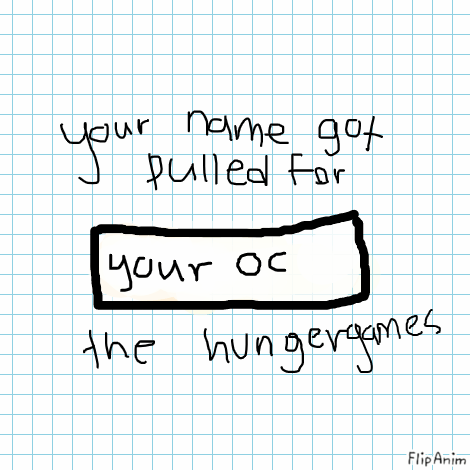 your name got
pulled for
your oc
the hungergames
FlipAnim